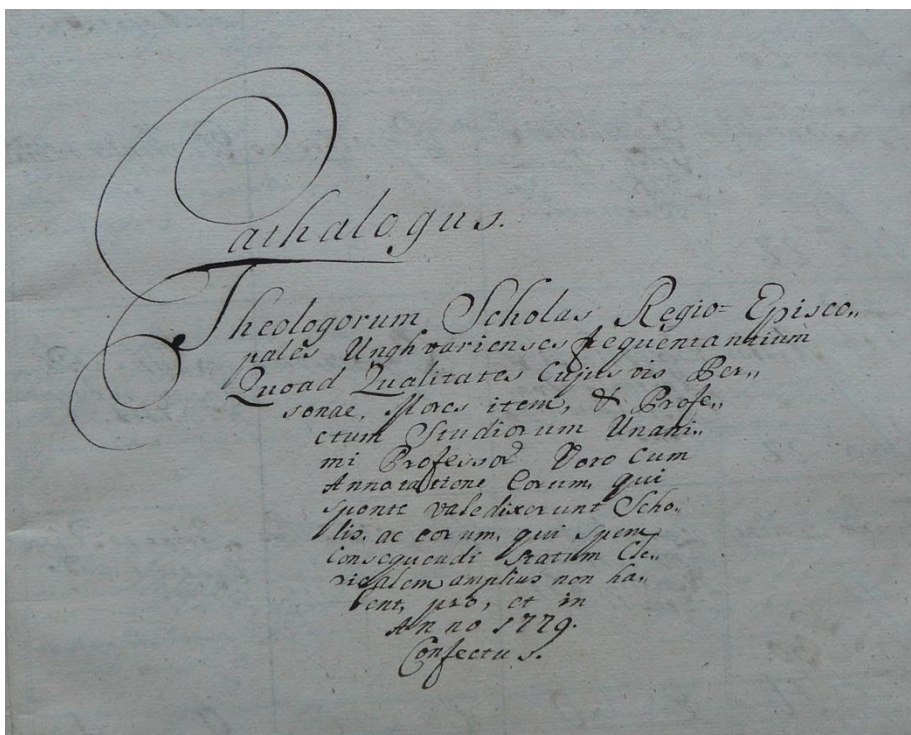 Cathalogus.
Theologorum Scholas Regio= Episco„
pales Unghvarienses fequentantium
Quoad Qualitates Cujus vis Per„
sonae, Mores item, & Profe„
ctum Studiorum Unani„
mi Professor̃ Voto cum
Annotatione Eorum, qui
sponte valedixerunt Scho„
lis, ac eorum, qui spem
consequendi statum Cle„
ricalem amplius non ha„
bent, pro, et in
Anno 1779.
Confectus.